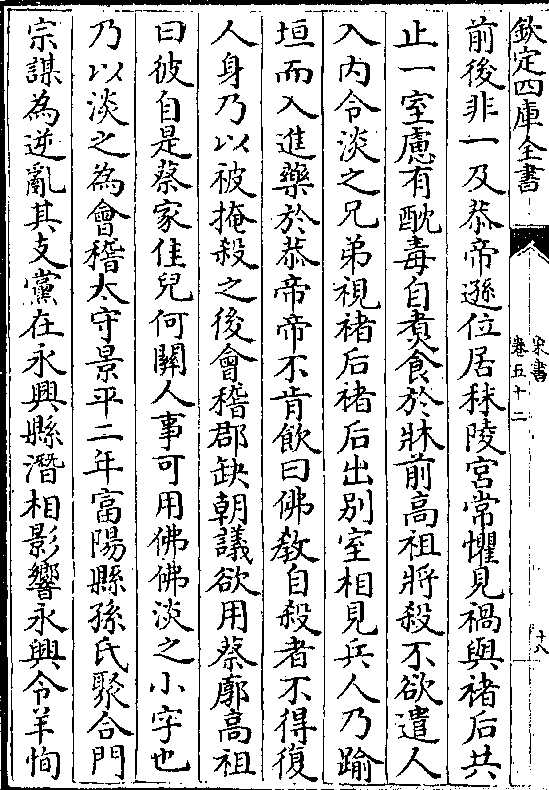 欽定四庫全書
宋書
卷五十二
十八
前後非一及恭帝遜位居秣陵宮常懼見禍與褚后共
止一室慮有酖毒自煑食於牀前高祖將殺不欲遣人
入内令淡之兄弟視褚后褚后出别室相見兵人乃踰
垣而入進藥於恭帝帝不肯飲曰佛教自殺者不得復
人身乃以被掩殺之後會稽郡缺朝議欲用蔡廓高祖
曰彼自是蔡家佳兒何關人事可用佛佛淡之小字也
乃以淡之為會稽太守景平二年富陽縣孫氏聚合門
宗謀為逆亂其支黨在永興縣潛相影響永興令羊恂